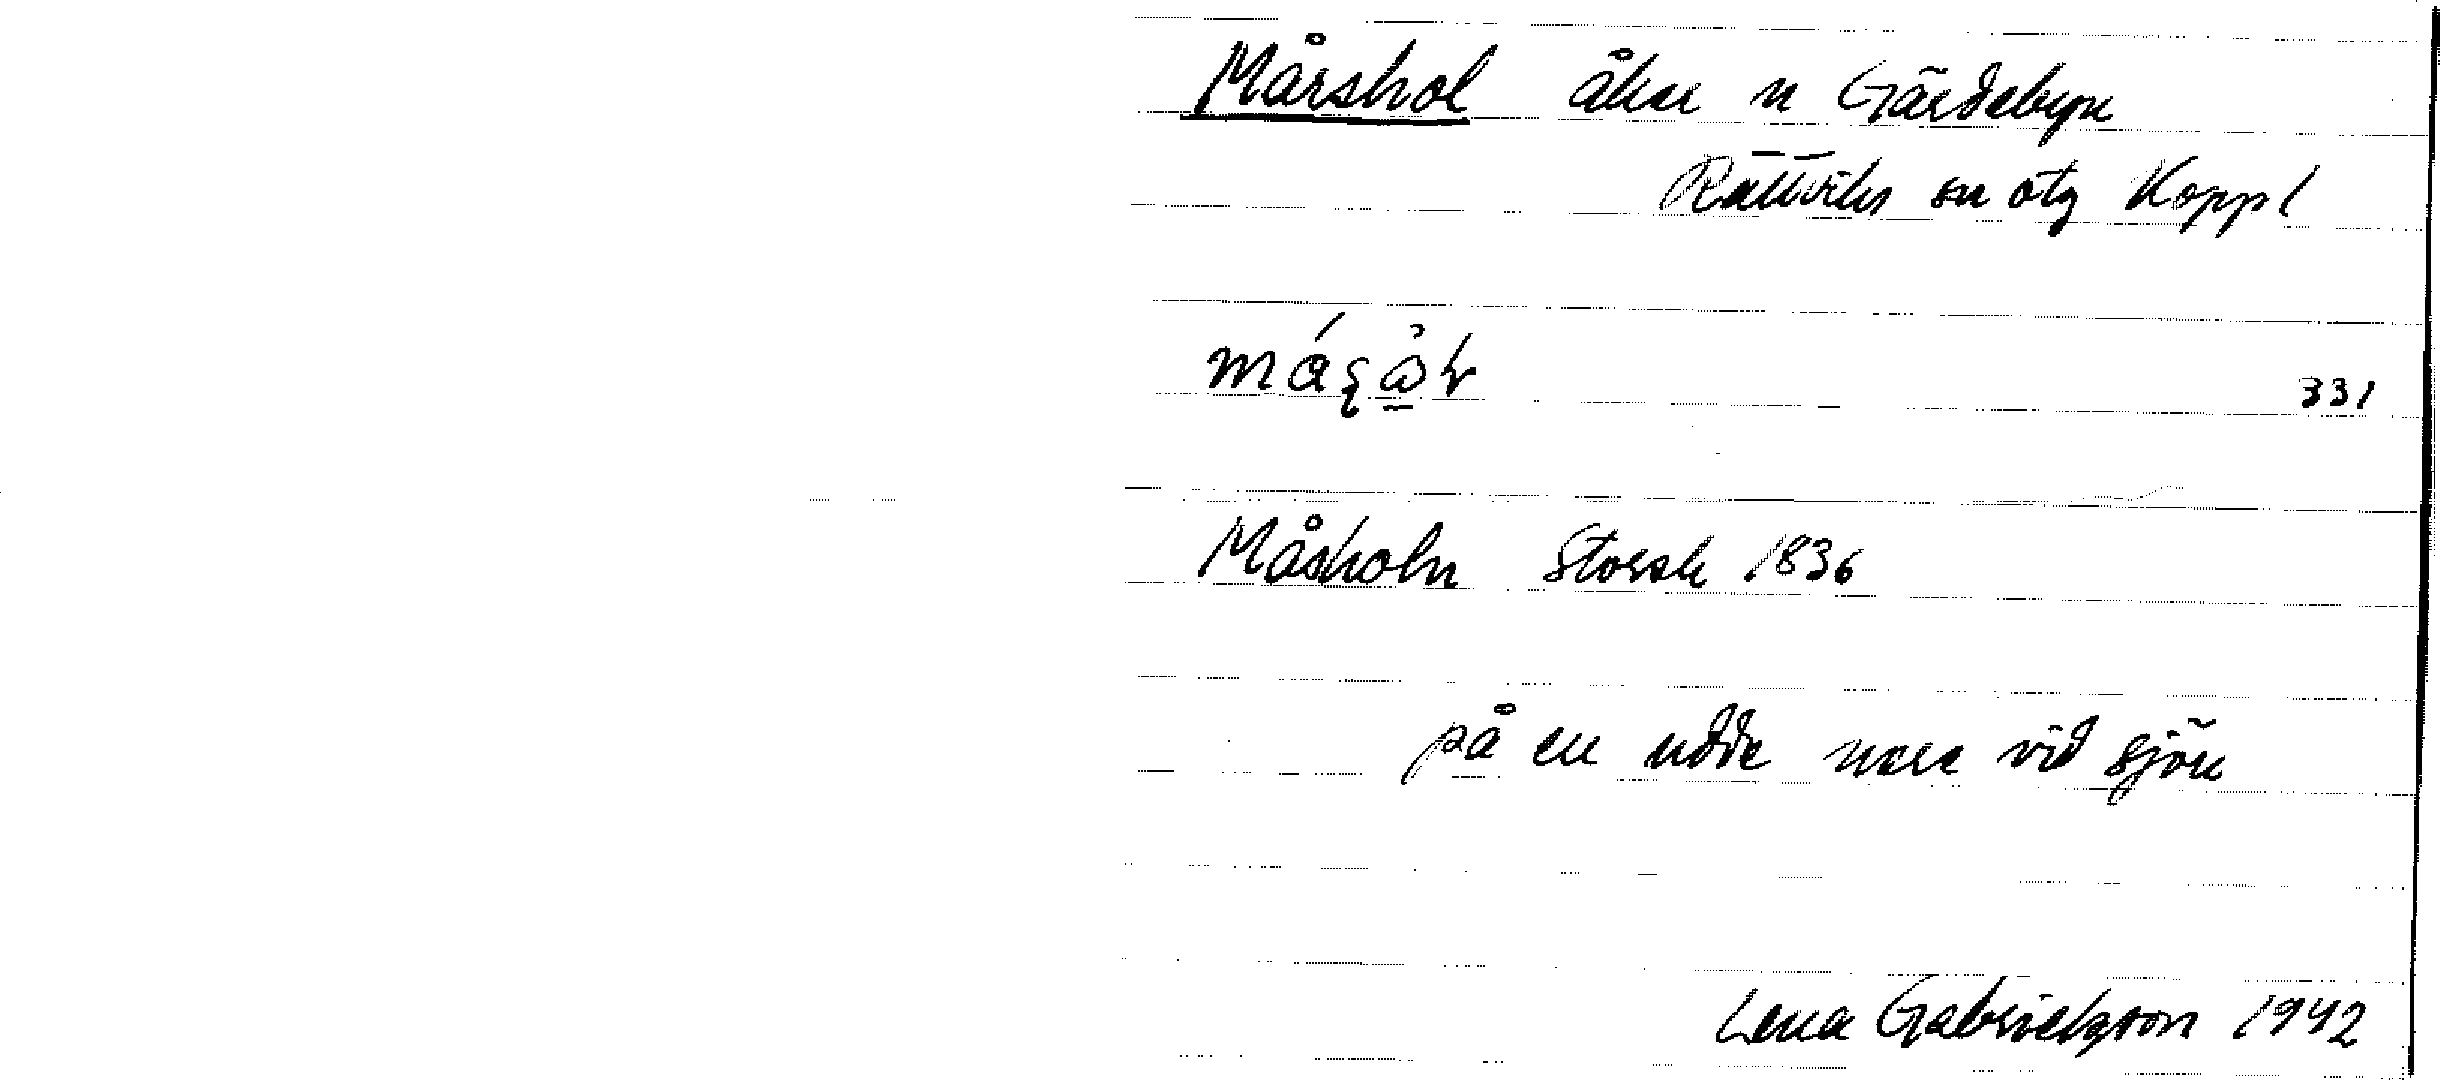 Mårshol åker n Gärdebyn
Rättviks sn ötg Koppl
331
Måsholn Storsk 1836
på en udde nere vid sjön
Lena Gabrielsson 1942